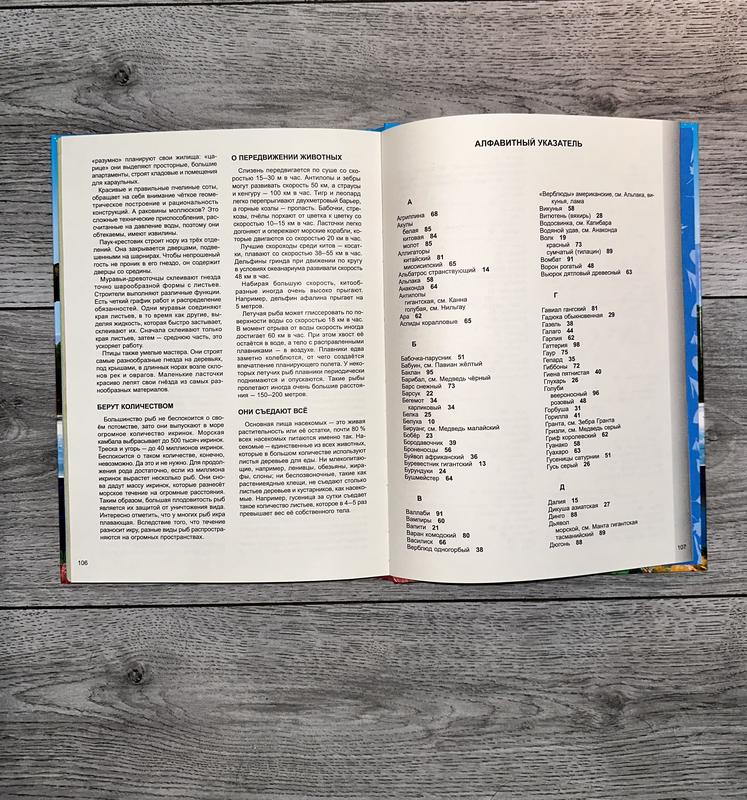 «разумно» планируют свои жилища: «ца-
рице» они выделяют просторные, большие
апартаменты, строят кладовые и помещения
для караульных.
Красивые и правильные пчелиные соты,
обращает на себя внимание чёткое геоме-
трическое построение и рациональность
конструкций. А раковины моллюсков? Это
сложные технические приспособления, рас-
считанные на давление воды, поэтому они
обтекаемы, имеют извилины.
Паук-крестовик строит нору из трёх отде-
лений. Она закрывается дверцами, подве-
шенными на шарнирах. Чтобы непрошеный
гость не проник в его гнездо, он содержит
дверцы со средины.
Муравьи-древоточцы склеивают гнезда
точно шарообразной формы с листьев.
Строители выполняют различные функции.
Есть четкий график работ и распределение
обязанностей. Одни муравьи соединяют
края листьев, в то время как другие, вы-
деляя жидкость, которая быстро застывает,
склеивают их. Сначала склеивают только
края листьев, затем — среднюю часть, это
ускоряет работу.
Птицы также умелые мастера. Они строят
самые разнообразные гнезда на деревьях,
под крышами, в длинных норах возле скло-
нов рек и оврагов. Маленькие ласточки
красиво лепят свои гнёзда из самых раз-
нообразных материалов.
БЕРУТ КОЛИЧЕСТВОМ
Большинство рыб не беспокоится о сво-
ём потомстве, зато они выпускают в море
огромное количество икринок. Морская
камбала выбрасывает до 500 тысяч икринок.
Треска и угорь — до 40 миллионов икринок.
Беспокоится о таком количестве, конечно,
невозможно. Да это и не нужно. Для продол-
жения рода достаточно, если из миллиона
икринок вырастет несколько рыб. Они сно-
ва дадут массу икринок, которые разнесёт
морское течение на огромные расстояния.
Таким образом, большая плодовитость рыб
является их защитой от уничтожения вида.
Интересно отметить, что у многих рыб икра
плавающая. Вследствие того, что течение
разносит икру, разные виды рыб распростра-
няются на огромных пространствах.
106
О ПЕРЕДВИЖЕНИИ ЖИВОТНЫХ
Слизень передвигается по суше со ско-
ростью 15–30 м в час. Антилопы и зебры
могут развивать скорость 50 км, а страусы
и кенгуру — 100 км в час. Тигр и леопард
легко перепрыгивают двухметровый барьер,
а горные козлы — пропасть. Бабочки, стре-
козы, пчёлы порхают от цветка к цветку со
скоростью 10–15 км в час. Ласточки легко
догоняют и опережают морские корабли, ко-
торые двигаются со скоростью 20 км в час.
Лучшие скороходы среди китов — косат-
ки, плавают со скоростью 38–55 км в час.
Дельфины гринда при движении по кругу
в условиях океанариума развивали скорость
48 км в час.
Набирая большую скорость, китооб-
разные иногда очень высоко прыгают.
Например, дельфин афалина прыгает на
5 метров.
Летучая рыба может глиссировать по по-
верхности воды со скоростью 18 км в час.
В момент отрыва от воды скорость иногда
достигает 60 км в час. При этом хвост её
остаётся в воде, а тело с расправленными
плавниками — в воздухе. Плавники едва
заметно колеблются, от чего создаётся
впечатление планирующего полета. У неко-
торых летучих рыб плавники периодически
поднимаются и опускаются. Такие рыбы
пролетают иногда очень большие расстоя-
ния — 150–200 метров.
ОНИ СЪЕДАЮТ ВСЁ
Основная пища насекомых — это живая
растительность или её остатки, почти 80 %
всех насекомых питаются именно так. На-
секомые – единственные из всех животных,
которые в большом количестве используют
листья деревьев для еды. Ни млекопитаю-
щие, например, ленивцы, обезьяны, жира-
фы, слоны; ни беспозвоночные, такие как
растениеядные клещи, не съедают столько
листьев деревьев и кустарников, как насеко-
мые. Например, гусеница за сутки съедает
такое количество листьев, которое в 4–5 раз
превышает вес её собственного тела.
АЛФАВИТНЫЙ УКАЗАТЕЛЬ
А
Агриппина 68
Акулы
белая 85
китовая 84
молот 85
Аллигаторы
китайский 81
миссисипский 65
Альбатрос странствующий 14
Альпака 58
Анаконда 64
Антилопы
гигантская, см. Канна
голубая, см. Нильгау
Ара 62
Аспиды коралловые 65
Б
Бабочка-парусник 51
Бабуин, см. Павиан жёлтый
Баклан 95
Барибал, см. Медведь чёрный
Барс снежный 73
Барсук 22
Бегемот 34
карликовый 34
Белка 25
Белуха 10
Бируанг, см. Медведь малайский
Бобёр 23
Бородавочник 39
Броненосцы 56
Буйвол африканский 36
Буревестник гигантский 13
Бурундуки 24
Бушмейстер 64
В
Валлаби 91
Вампиры 60
Вапити 21
Варан комодский 80
Василиск 66
Верблюд одногорбый 38
«Верблюды» американские, см. Альпака, ви-
кунья, лама
Викунья 58
Витютень (вяхирь) 28
Водосвинка, см. Капибара
Водяной удав, см. Анаконда
Волк 19
красный 73
сумчатый (тилацин) 89
Вомбат 91
Ворон рогатый 48
Вьюрок дятловый древесный 63
Г
Гавиал гангский 81
Гадюка обыкновенная 29
Газель 38
Галаго 44
Гарпия 62
Гаттерия 98
Гаур 75
Гепард 35
Гиббоны 72
Гиена пятнистая 40
Глухарь 26
Голуби
веероносный 96
розовый 48
Горбуша 31
Горилла 41
Гранта, см. Зебра Гранта
Гризли, см. Медведь серый
Гриф королевский 62
Гуанако 58
Гуахаро 63
Гусеницы сатурнии 51
Гусь серый 26
Д
Далия 15
Дикуша азиатская 27
Динго 88
Дьявол
морской, см. Манта гигантская
тасманийский 89
Дюгонь 88
107